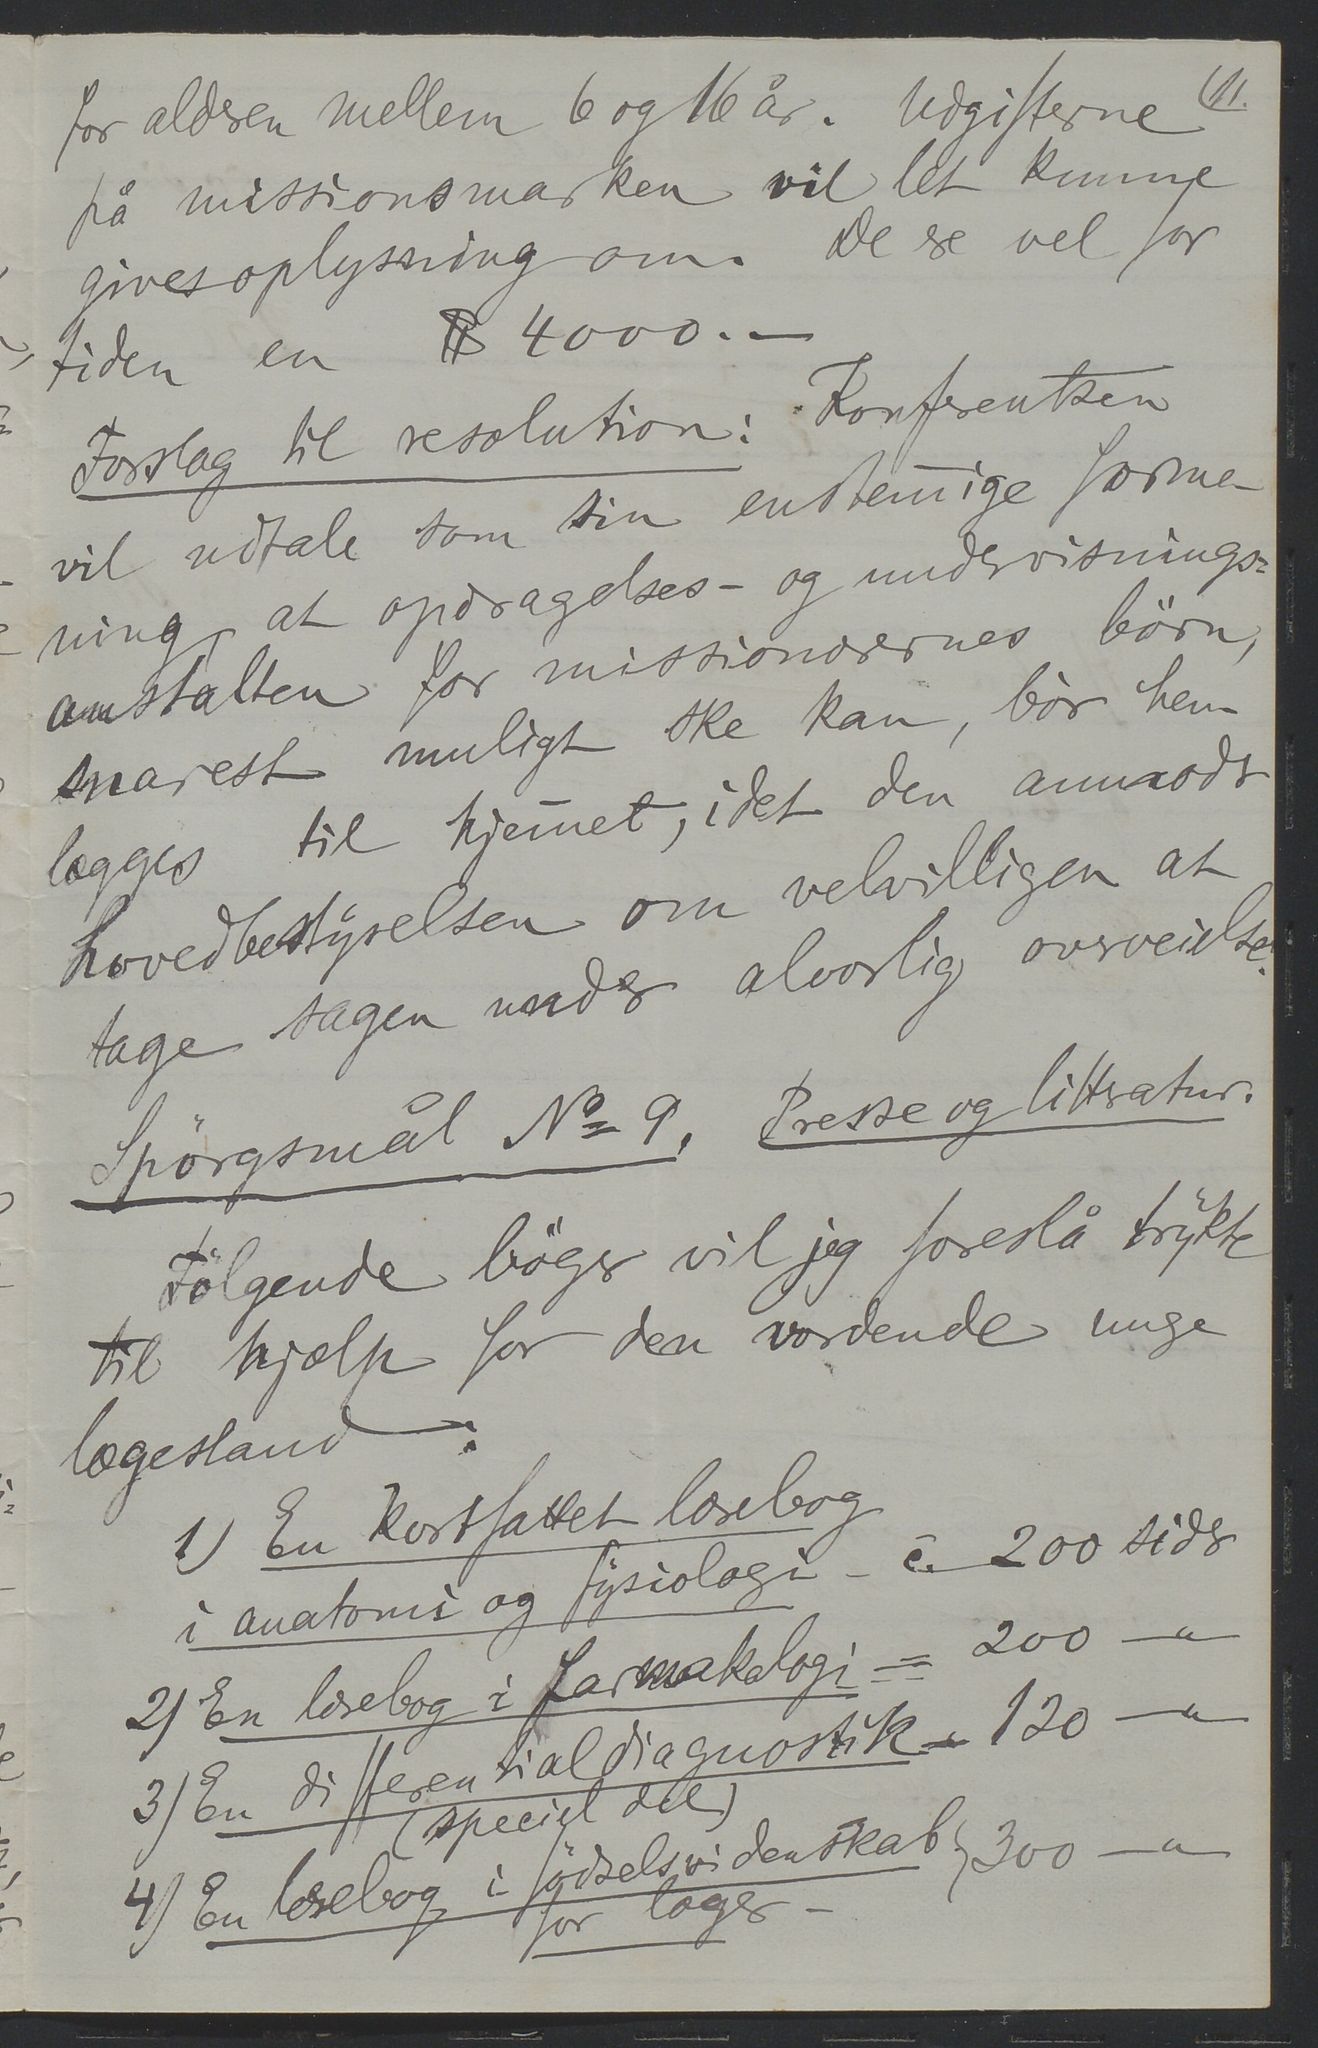 11.
for alderen mellem 6 og 16 år. Udgifterne
på missionsmarken vil let kunne
gives oplysning om. De er vel for
tiden en $ 4000.—
Forslag til resolution: Konferentsen
vil udtale som sin enstem̄ige forme-
ning, at opdragelses- og undervisnings=
anstalten for missionærernes börn,
snarest muligt ske kan, bör hen-
lægges til hjem̄et, idet den anmoder
hovedbestyrelsen om velvilligen at
tage sagen under alvorlig overveielse.
Spörgsmål No 9. Presse og litteratur.
Fölgende böger vil jeg foreslå trykte
til hjælp for den vordende unge
lægestand:
1) En kortfattet læsebog
i anatomi og fysiologi - c. 200 sider
2) En læsebog i farmakologi = 200 —"—
3) En differentialdiagnostik - 120 —"—
(speciel del)
4) En læsebog i födselsvidenskab } 300 —"—
for læger -